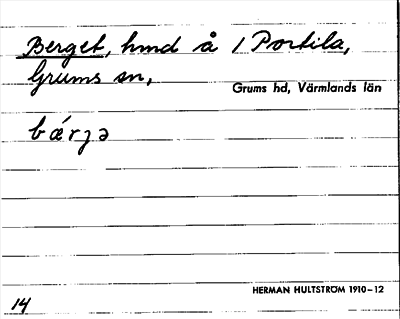 Berget, hmd å 1 Portila,
Grums sn,
Grums hd, Värmlands län
bǽrȷə
HERMAN HULTSTRÖM 1910-12
14